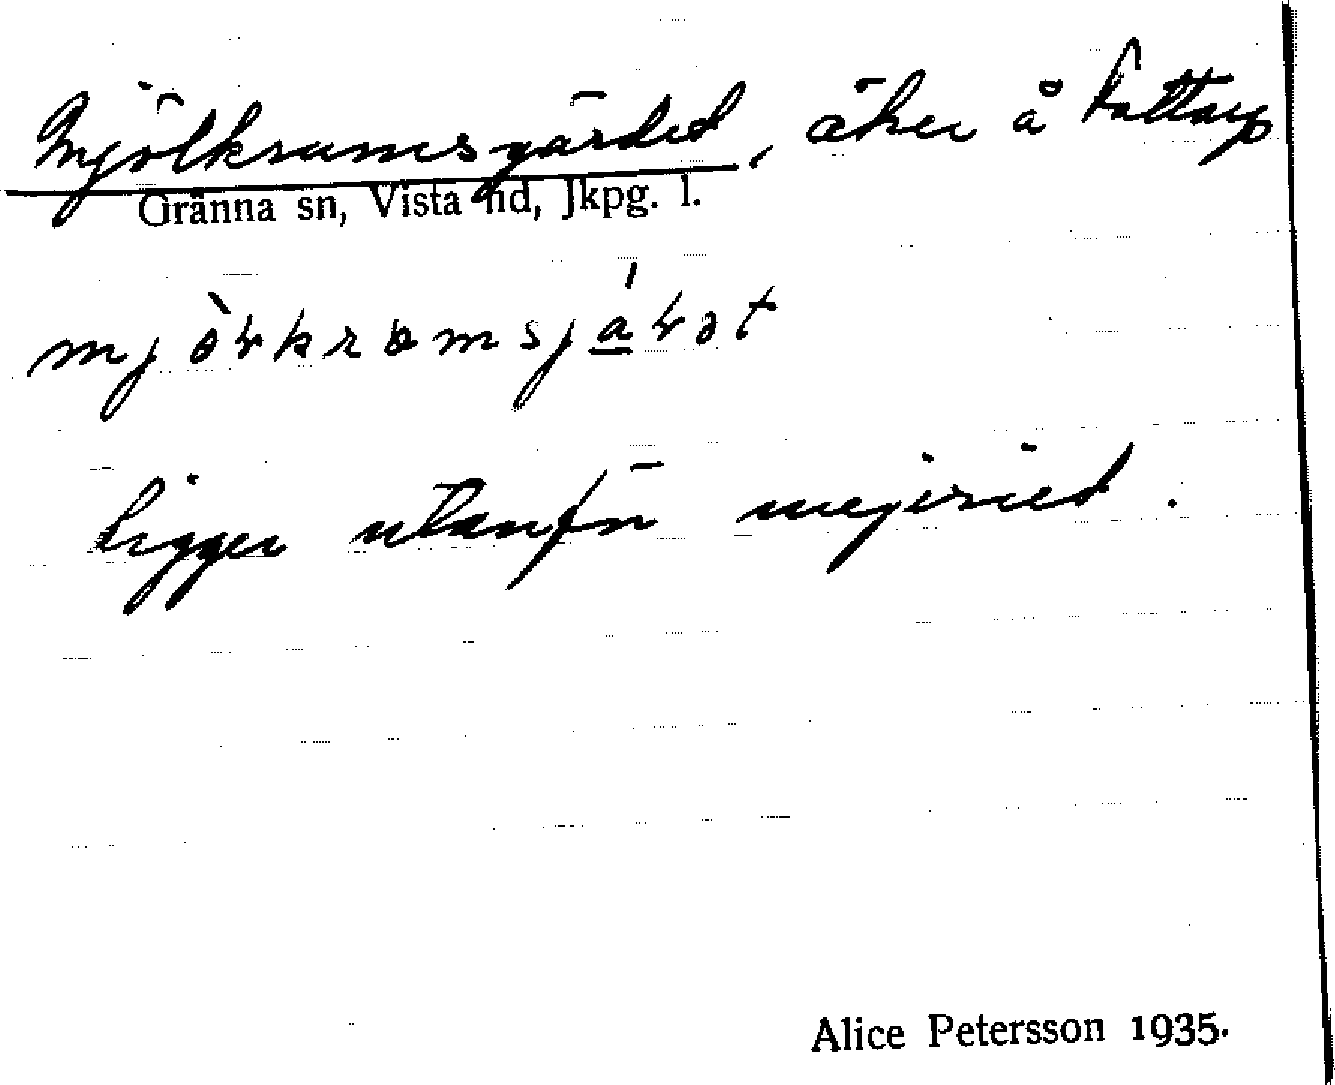 Mjölkrumsgärdet, åker å Kattarp
Gränna sn, Vista hd, Jkpg. l.
Ligger utanför mejeriet.
Alice Petersson 1935.